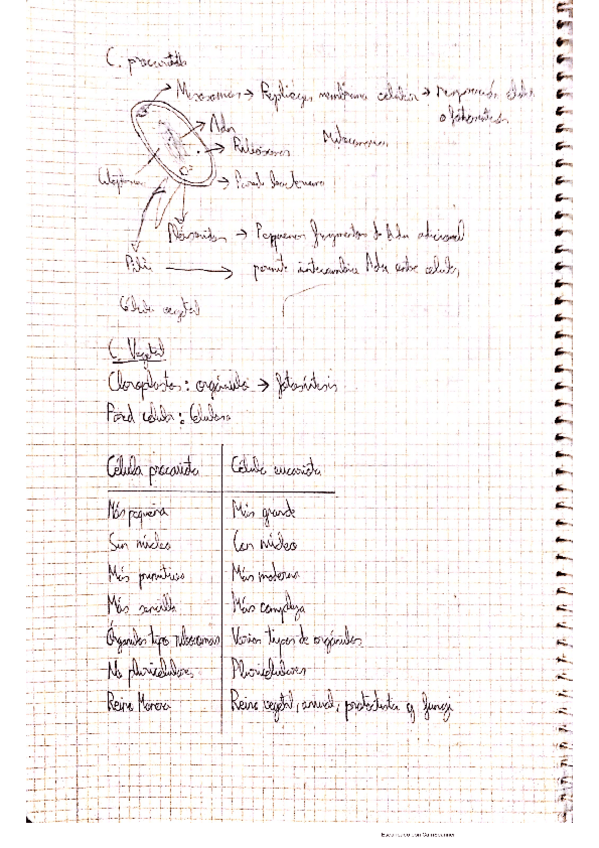 C. procariota
Mesosomas → Repliegues membrana celular → respiración celular
o fotosíntesis
Adn
Ribosomas
Citoplasma
Pared bacteriana
Plásmidos → Pequeños fragmentos de Adn adicional
Pili → permite intercambiar Adn entre células
Célula vegetal
C. Vegetal
Cloroplastos: orgánulo → fotosíntesis
Pared celular: Celulosa
Célula procariota Célula eucariota
Más pequeña Más grande
Sin núcleo Con núcleo
Más primitiva Más moderna
Más sencilla Más compleja
Órganulos tipo ribosomas Varios tipos de orgánulos
No pluricelulares Pluricelulares
Reino Monera Reino vegetal, animal, protoctista y fungi
Escaneado con CamScanner